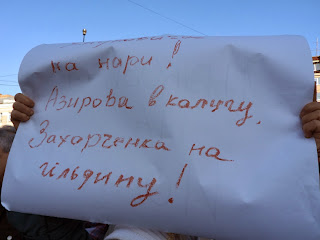 на нари!
Азирова в калугу,
Захарченка на
гільдину!